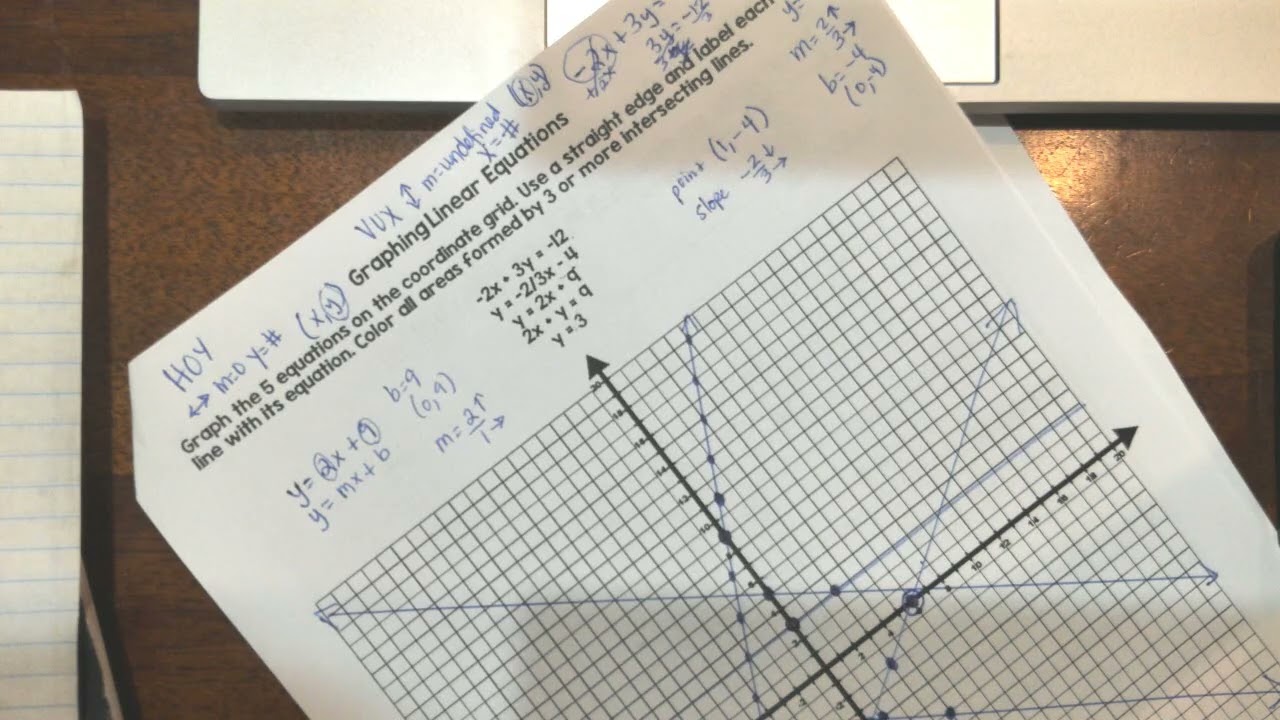 HOY
↔ m=0 y=# (x,y)
VUX ↕ m=undefined (x,y)
x=#
-2x + 3y =
+2x
3y = -12
y=
m = 2↑
3→
b = -4
(0,-4)
Graphing Linear Equations
Graph the 5 equations on the coordinate grid. Use a straight edge and label each
line with its equation. Color all areas formed by 3 or more intersecting lines.
-2x + 3y = -12
y = -2/3x - 4
y = 2x + 9
2x + y = 9
y = 3
point (1,-4)
slope -2↓
3→
y = 2x + 9
y = mx + b
b=9
(0,9)
m = 2↑
1→
20
18
16
14
12
10
8
6
4
2
2
4
8
10
12
14
16
18
20